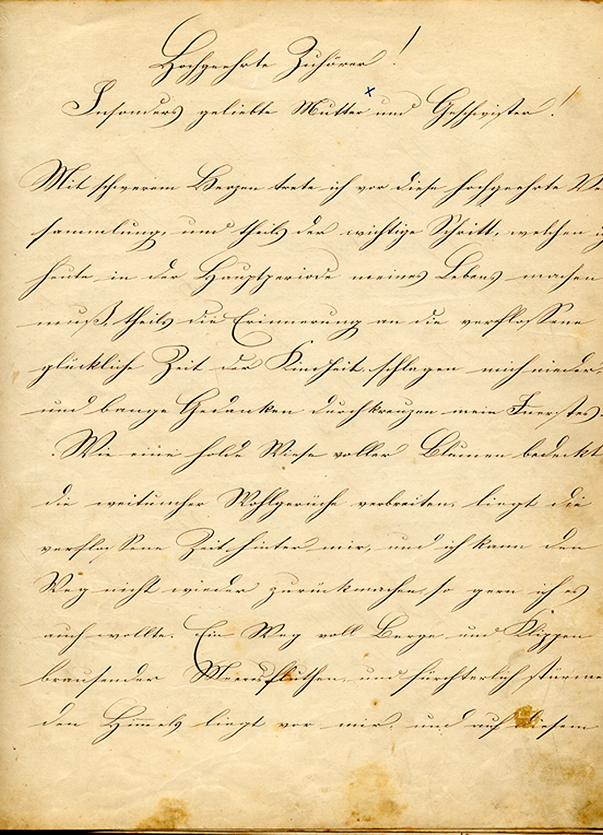 Hochgeehrte Zuhörer!
Insonders geliebte Mutter x und Geschwister!
Mit schwerem Herzen trete ich vor diese hochgeehrte Ve
sammlung, und theils der wichtige Schritt, welchen i
heute in der Hauptperiode meines Lebens machen
muß, theils die Erinnerung an die verflossene
glückliche Zeit der Kindheit schlagen mich nieder,
und bange Gedanken durchkreuzen mein Inerstes.
Wie eine holde Wiese voller Blumen bedeckt
die weitumher Wohlgerüche verbreiten, liegt die
verflossene Zeit hinter mir, und ich kann den
Weg nicht wieder zurückmachen, so gern ich es
auch wollte. Ein Weg voll Berge und Klippen
brausender Meeresfluthen, und fürchterlich stürme
den Himmels liegt vor mir, und auf diesem